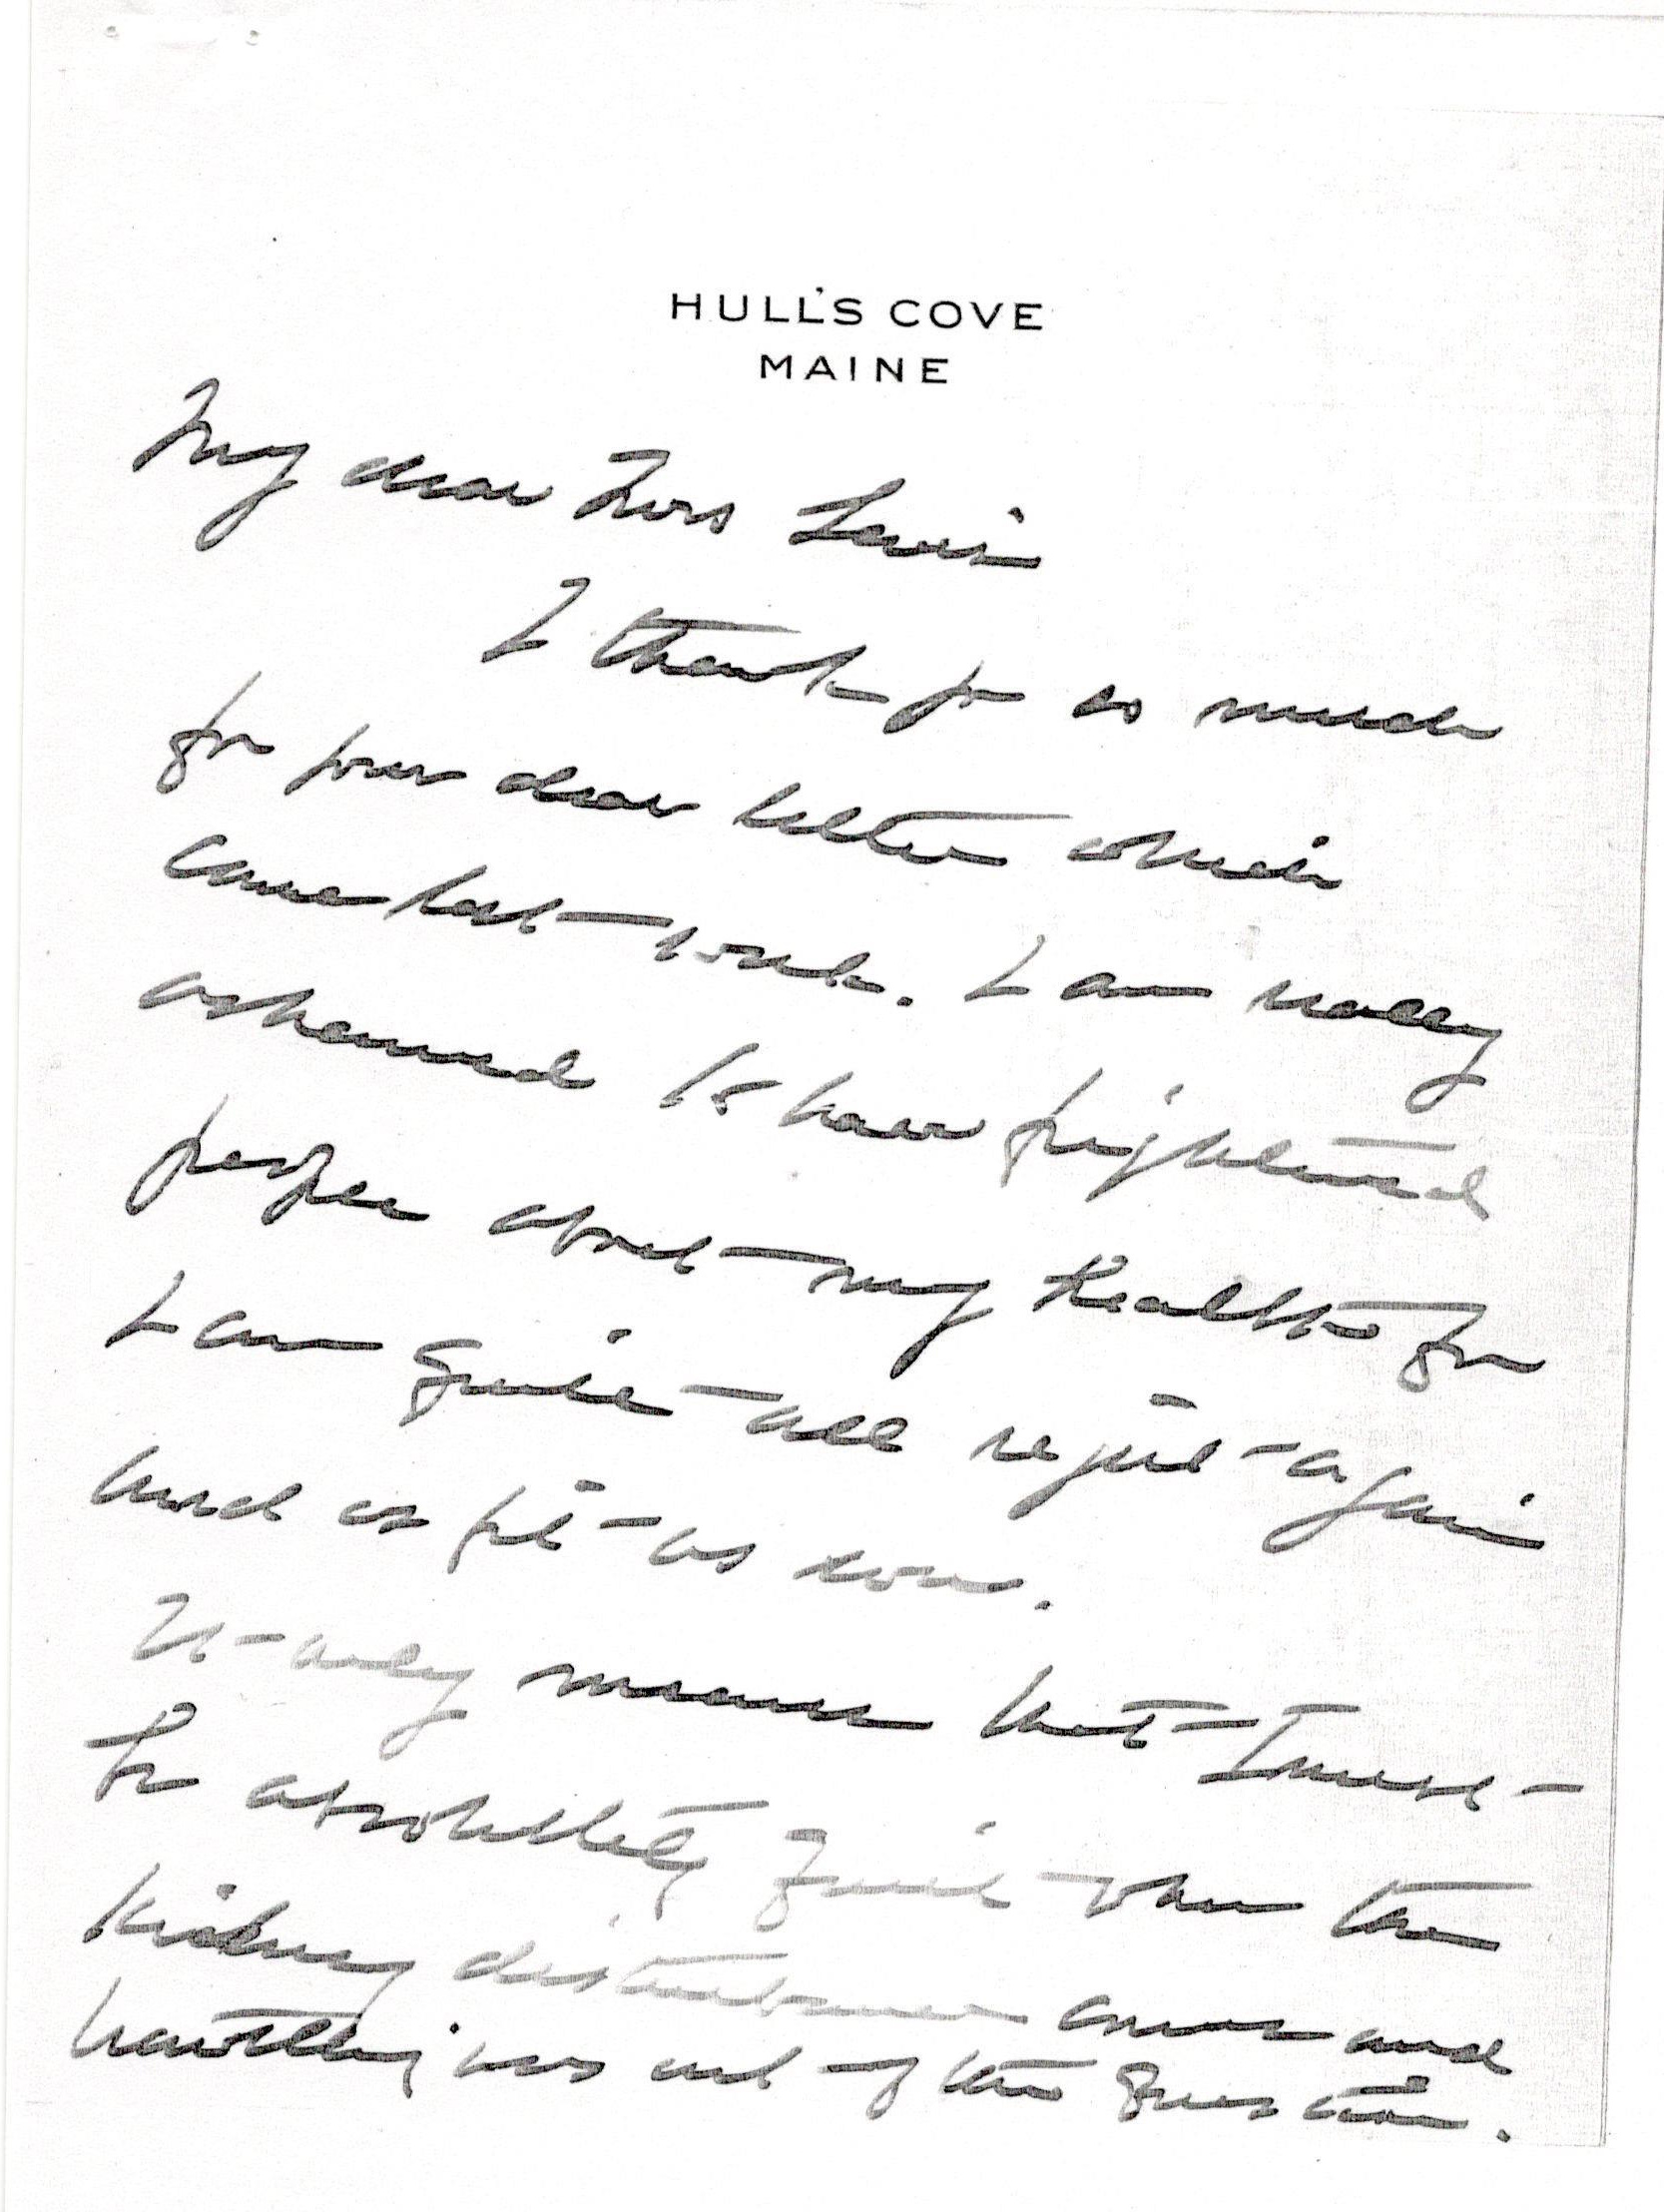 HULL'S COVE
MAINE
My dear Mrs Lewis
I thank you so much
for your dear letter which
came last week. I am really
ashamed to have frightened
people about my health for
I am quite all right again
and as fit as now.
It only means that I must
be absolutely quiet when the
kidney disturbance comes and
travelling was out of the question.